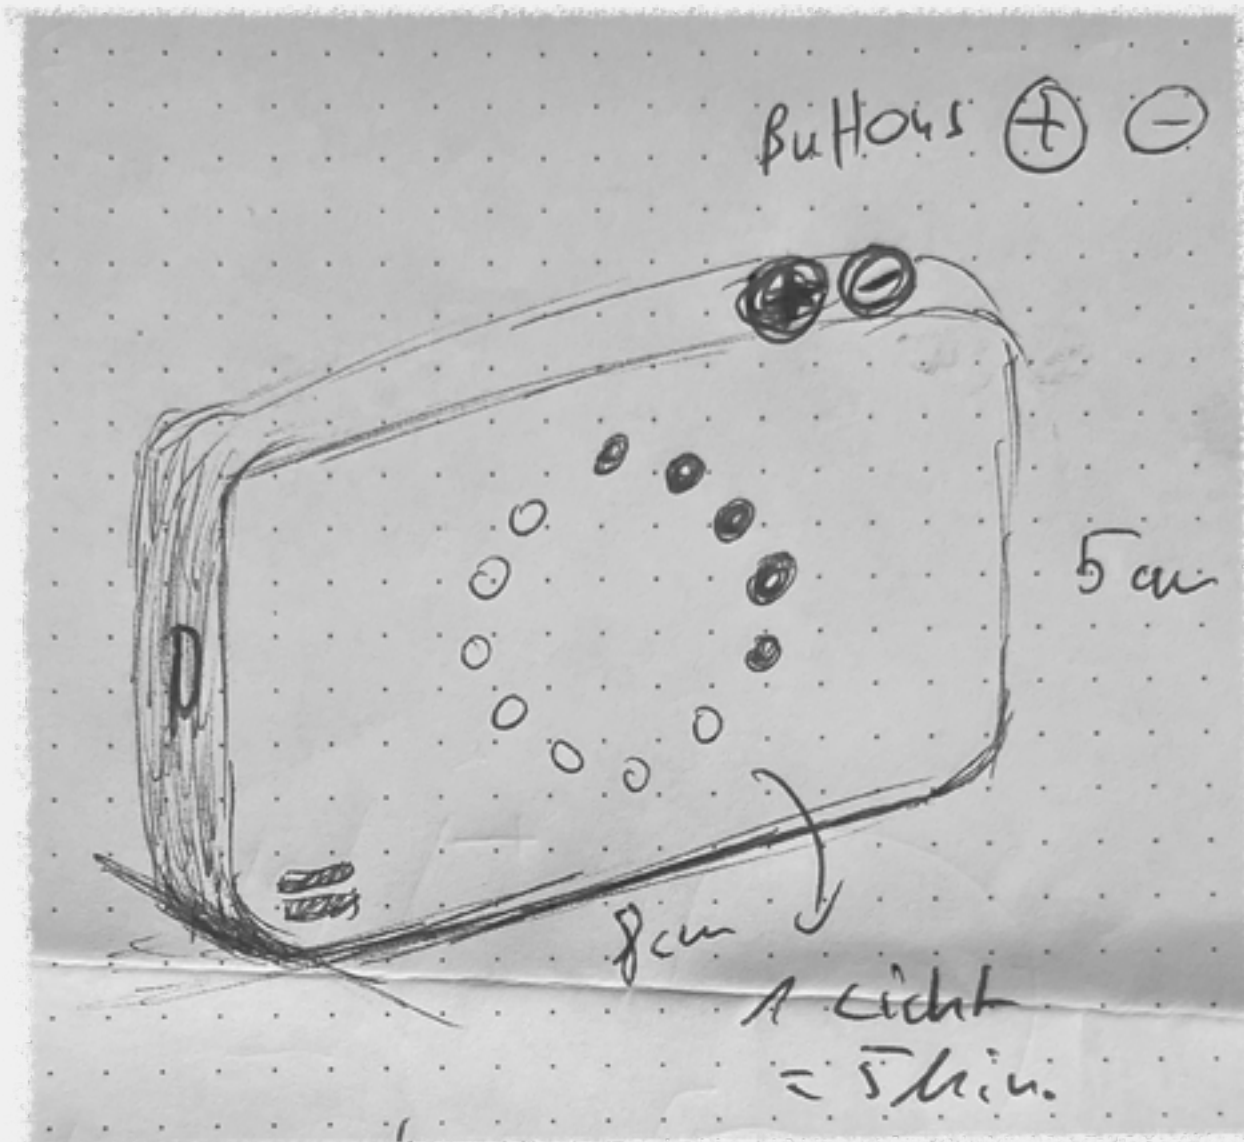 Buttons ⊕ ⊖
5 cm
8 cm
1 Licht
= 5 Min.